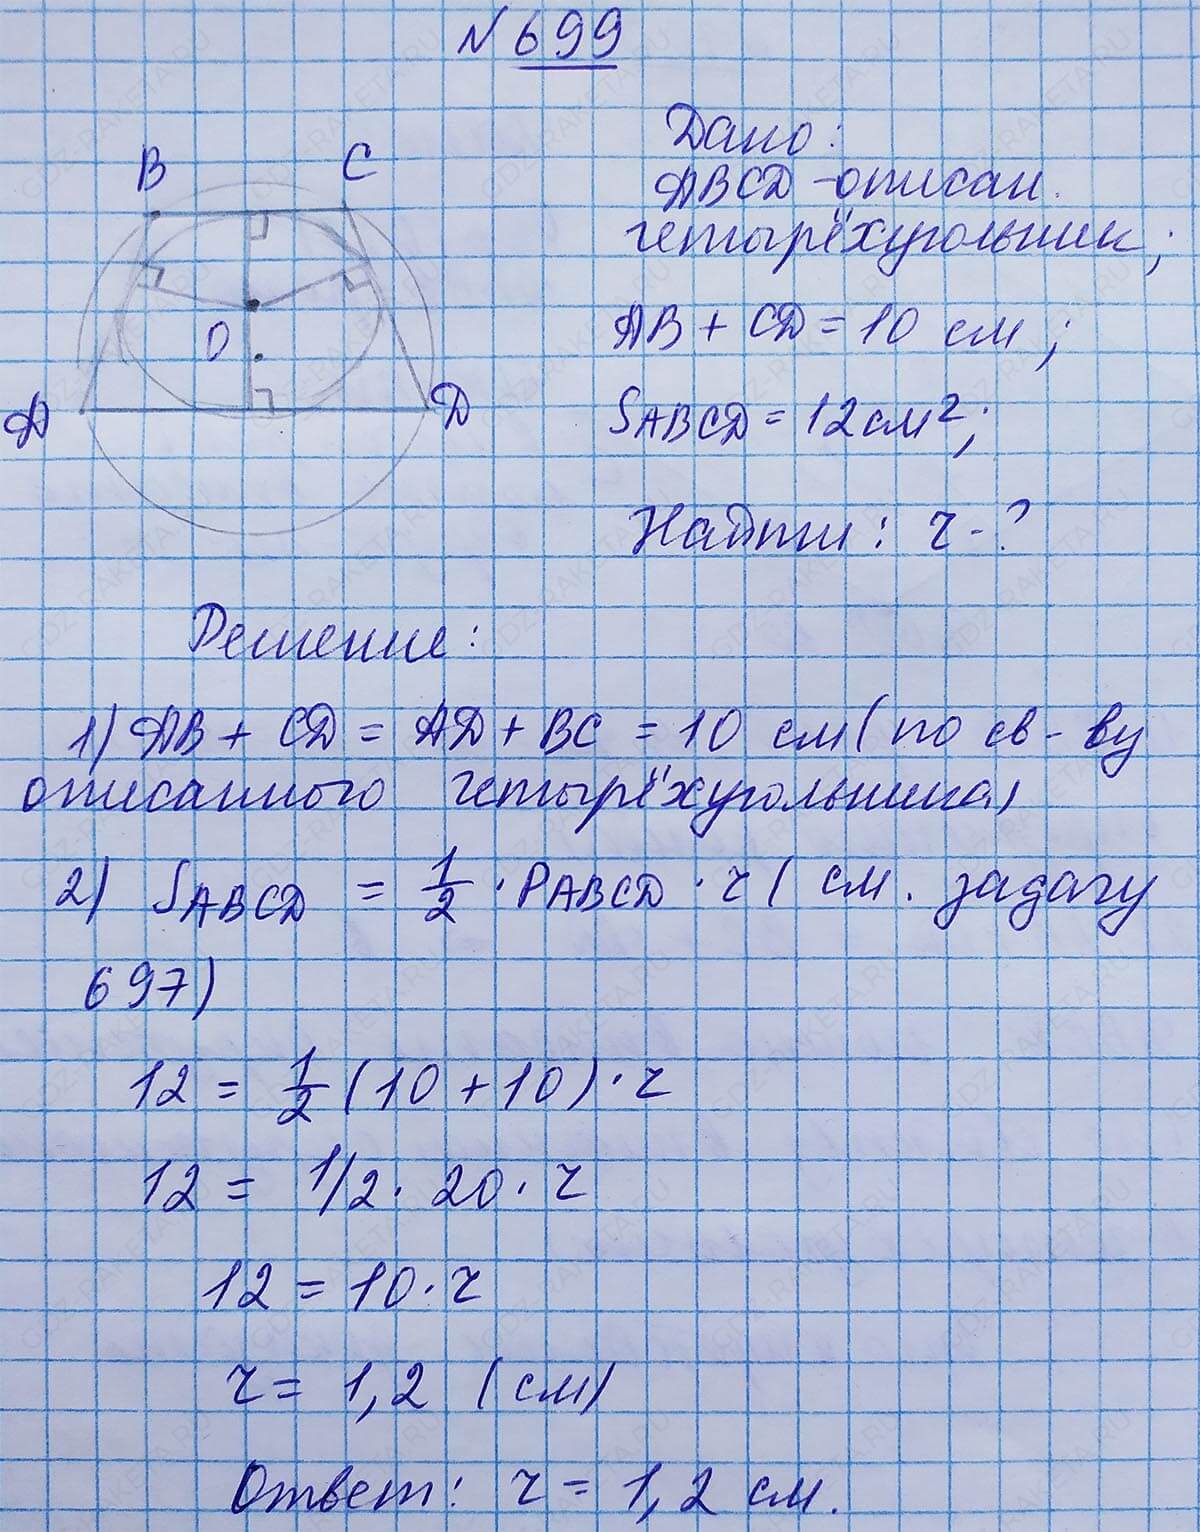 № 699
Дано:
ABCD - описан.
четырёхугольник;
AB + CD = 10 см;
SABCD = 12 см²;
Найти: r - ?
B C
O
A D
Решение:
1) AB + CD = AD + BC = 10 см (по св-ву
описанного четырёхугольника)
2) SABCD = 1/2 · PABCD · r (см. задачу
697)
12 = 1/2 (10 + 10) · r
12 = 1/2 · 20 · r
12 = 10 · r
r = 1,2 (см)
Ответ: r = 1,2 см.
GDZ-RAKETA.RU